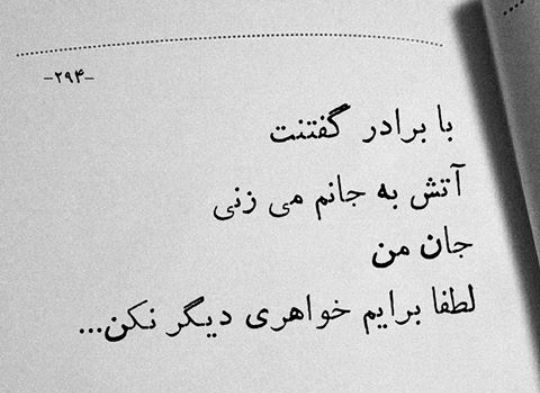 -۲۹۴-
با برادر گفتنت
آتش به جانم می زنی
جان من
لطفا برایم خواهری دیگر نکن...